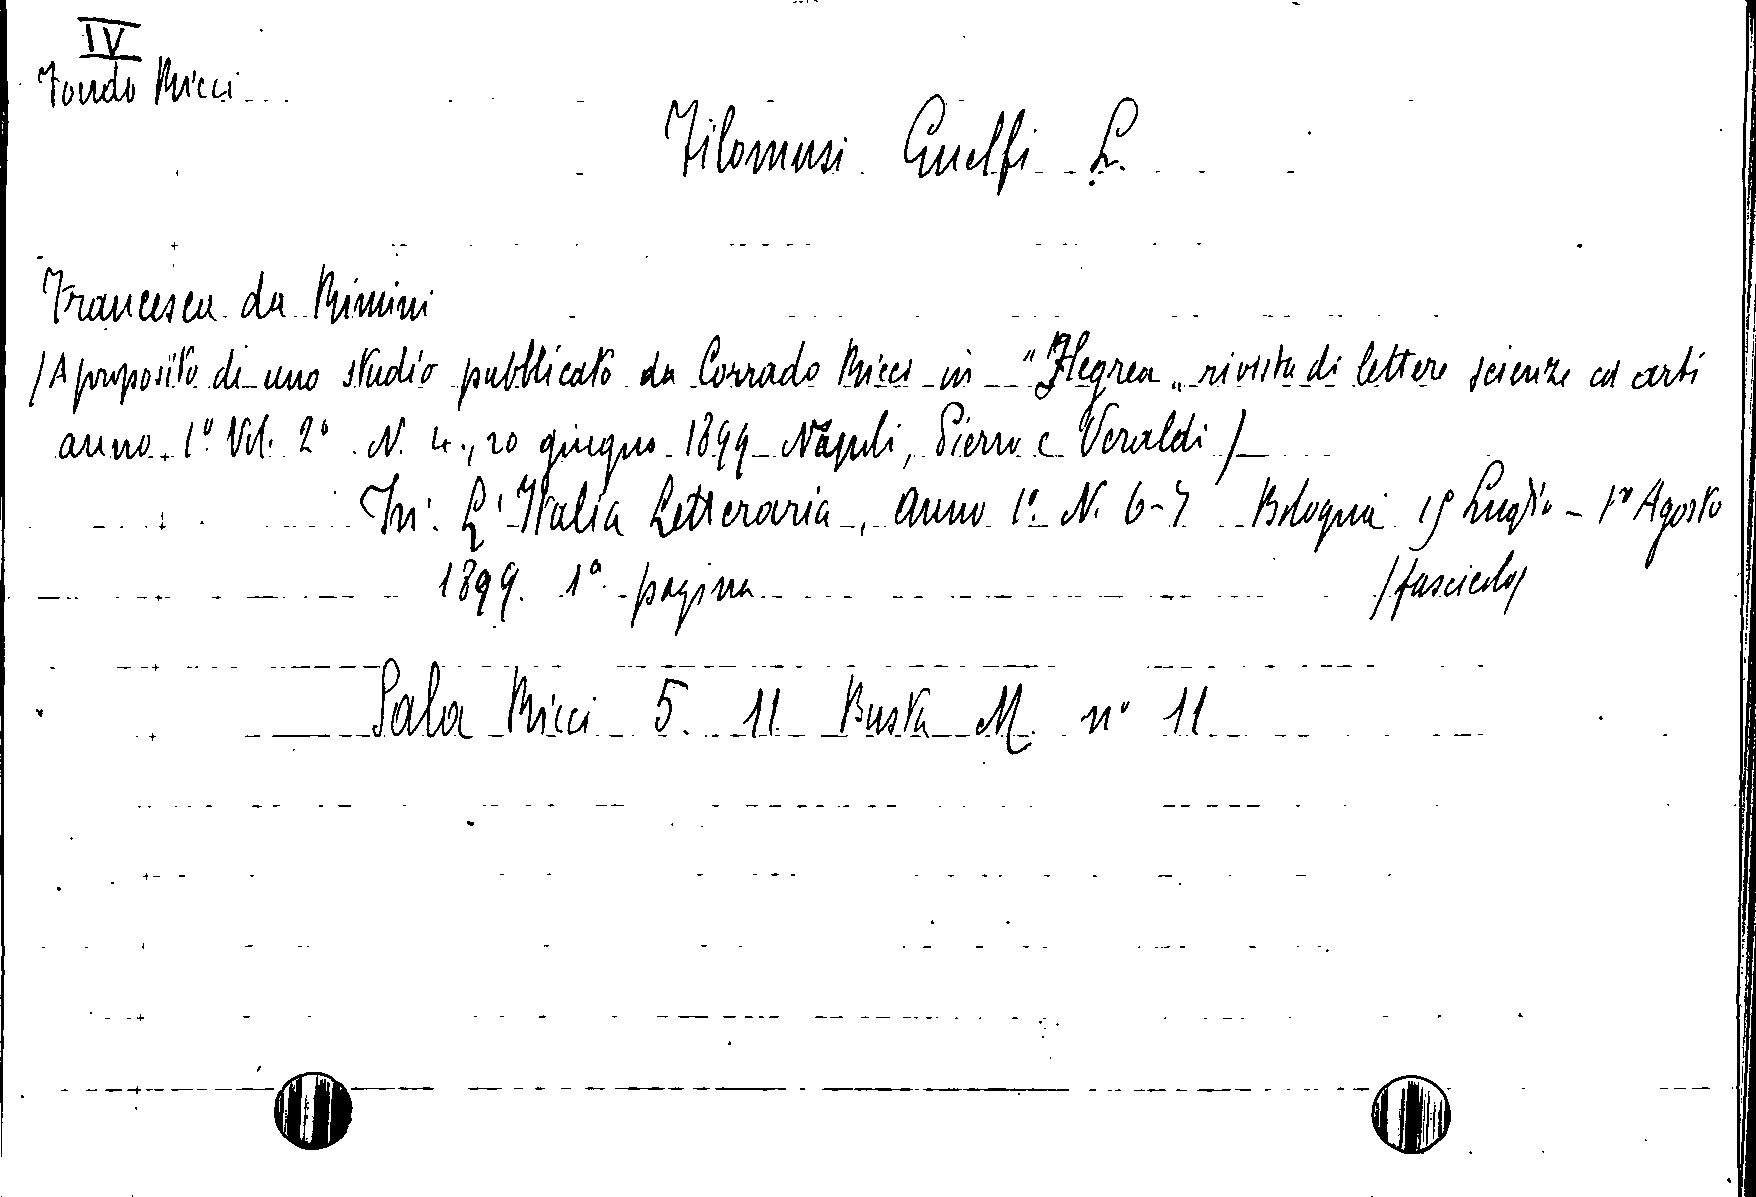 IV
Fondo Ricci
Filomusi Guelfi L.
Francesca da Rimini
/A proposito di uno studio pubblicato da Corrado Ricci in "Flegrea„ rivista di lettere scienze ed arti
anno 1° Vol. 2° N. 4., 20 giugno 1899 Napoli, Pierro e Veraldi/
In: L'Italia Letteraria, anno 1°. N. 6-7 Bologna 15 Luglio - 1° Agosto
1899. 1ª pagina /fascicolo/
Sala Ricci 5. 11 Busta M. n° 11